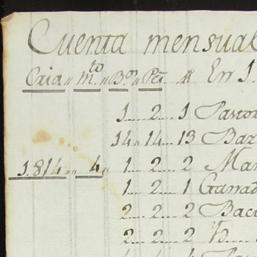 Cuenta mensual
Oria " M.to " B.on " Pes " En 1.
1... 2... 1 Pastor
14 " 14... 13 Baz
1.814 " 4 " 1... 2... 2 Mar
1... 2... 1 Granad
2... 2... 2 Baci
2... 2... 2